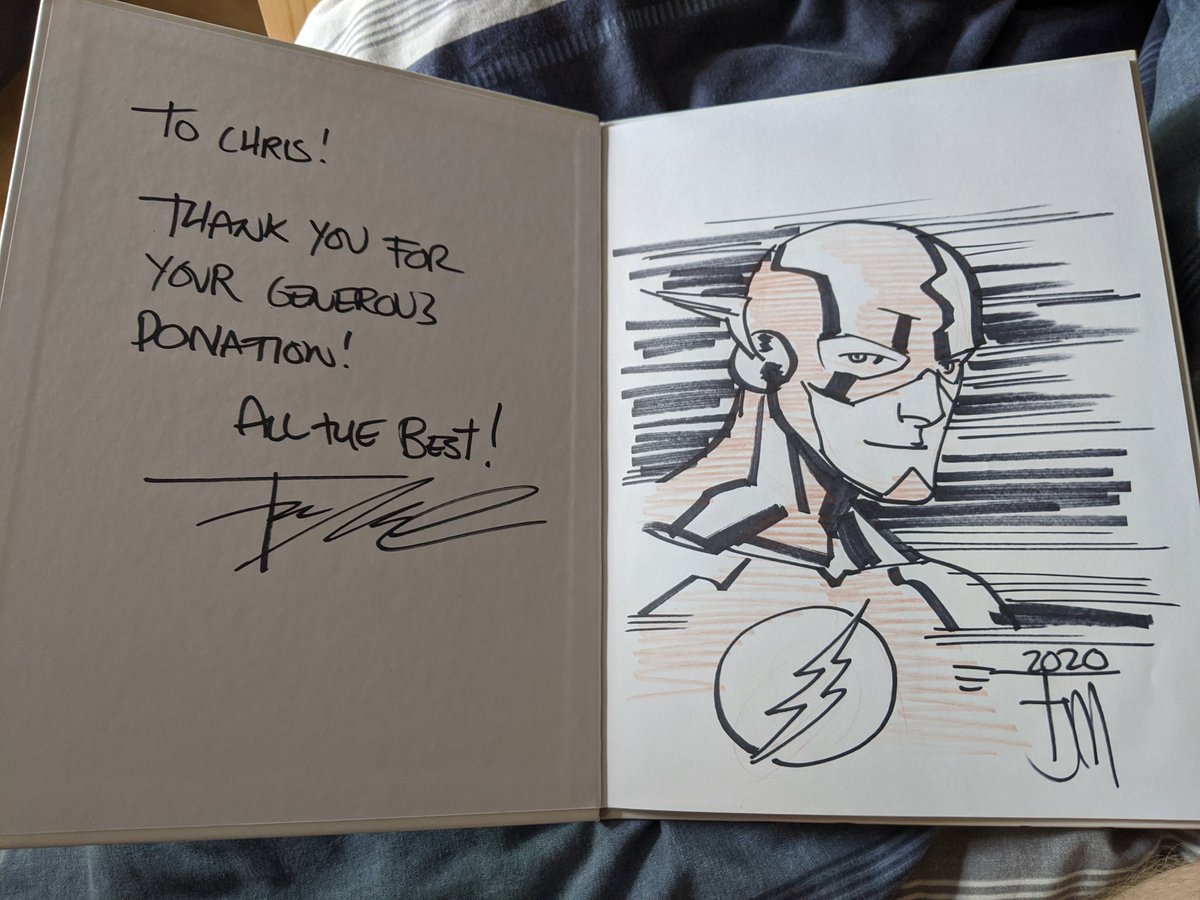 TO CHRIS!
THANK YOU FOR
YOUR GENEROUS
DONATION!
ALL THE BEST!
2020